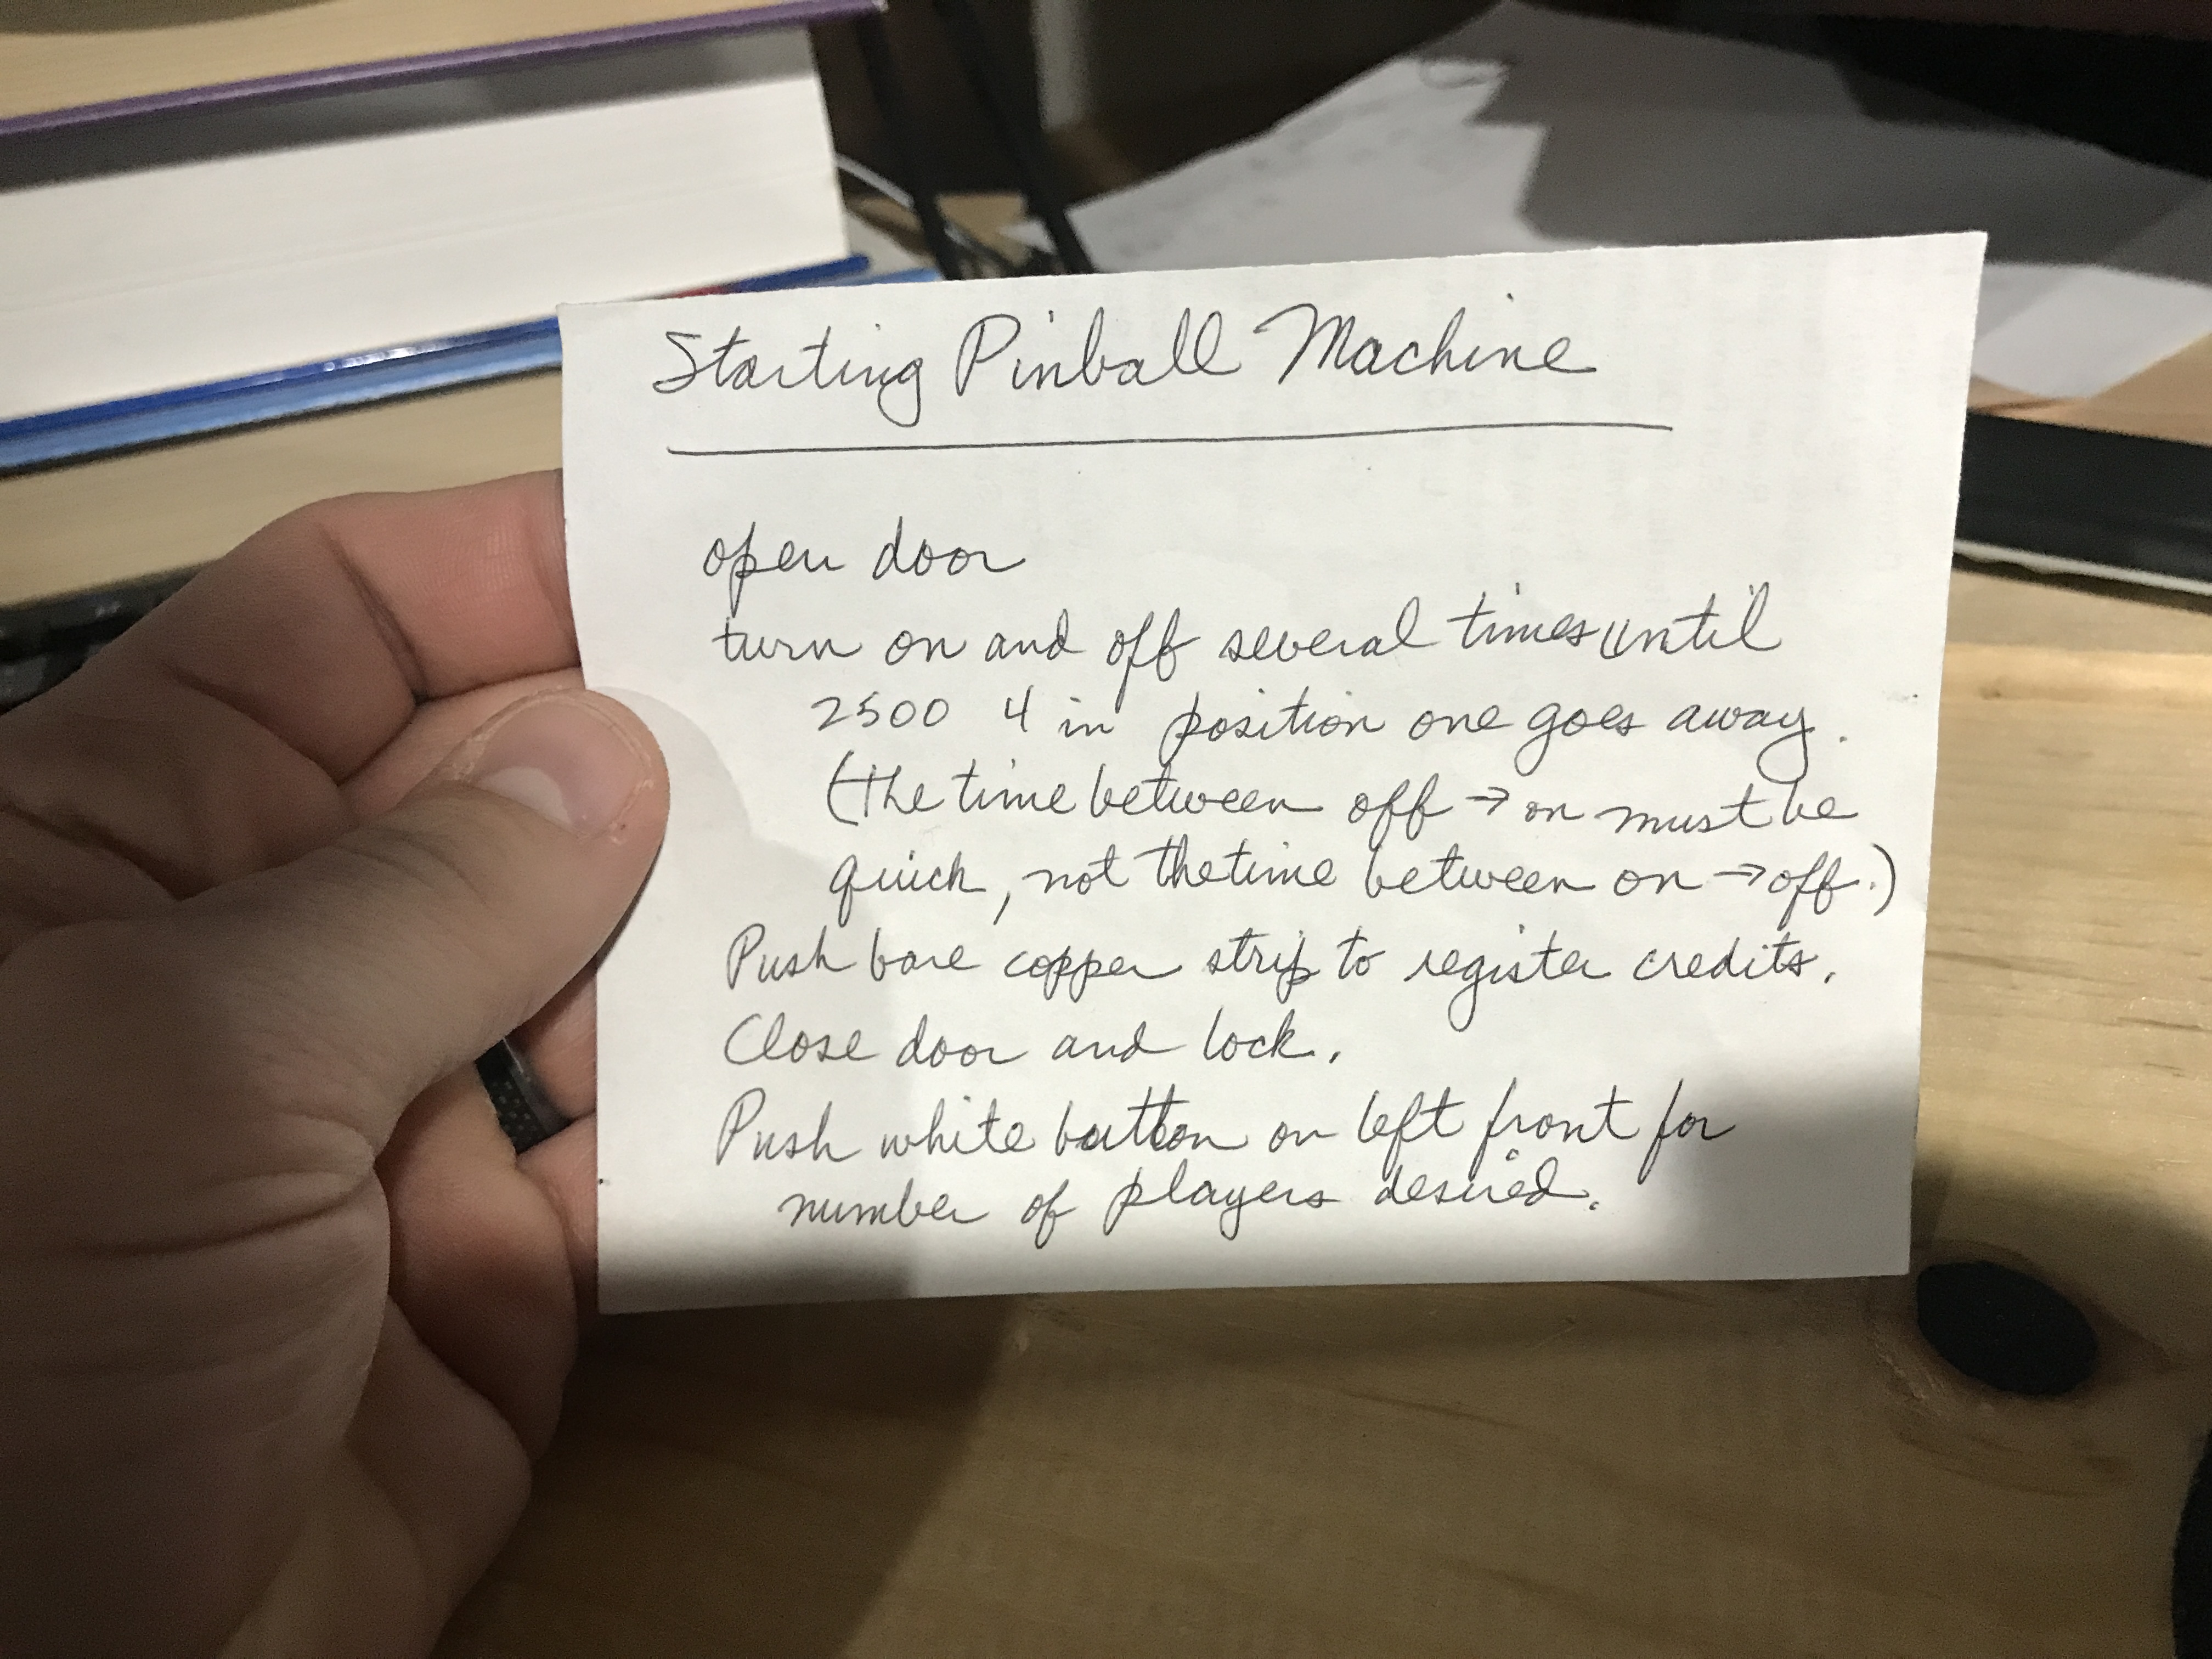 Starting Pinball Machine
open door
turn on and off several times until
2500 4 in position one goes away.
(the time between off → on must be
quick, not the time between on → off.)
Push bare copper strip to register credits.
Close door and lock.
Push white button on left front for
number of players desired.